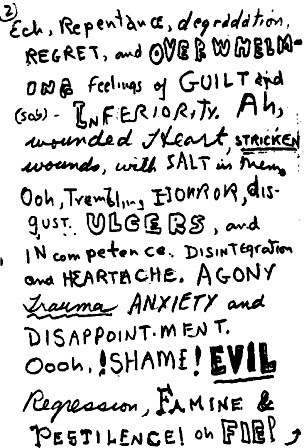 2
Ech, Repentance, degradation,
REGRET, and OVERWHELM-
ING feelings of GUILT and
(sob) - INFERIORITY. Ah,
wounded Heart, STRICKEN
wounds, with SALT in them,
Ooh, Trembling HORROR, dis-
gust. ULCERS, and
INcompetence. DISINTEgRATION
and HEARTACHE. AGONY
Trauma ANXIETY and
DISAPPOINT-MENT.
Oooh, !SHAME! EVIL
Regression, FAMINE &
PESTILENCE! oh FIE!